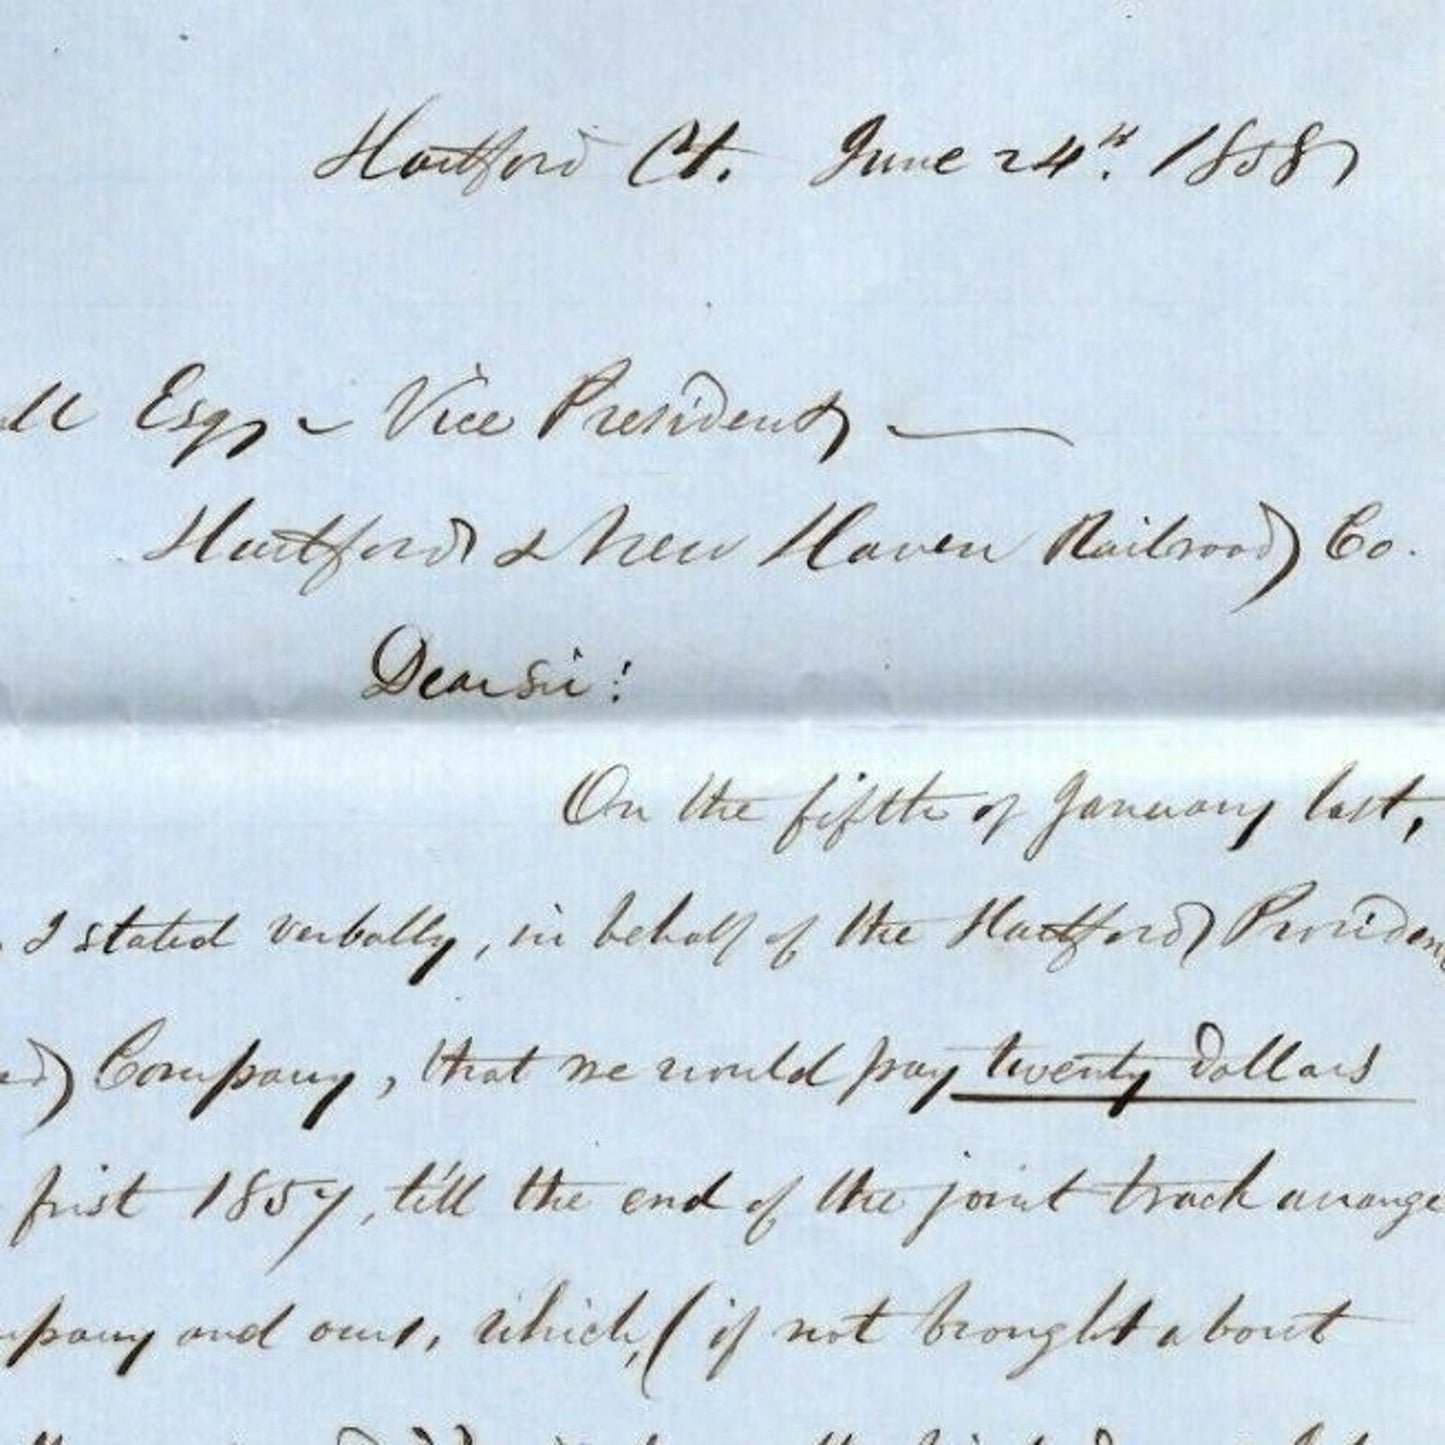 Hartford Ct. June 24th. 1858
Esq, - Vice President, -
Hartford & New Haven Railroad Co.
Dear sir:
On the fifth of January last,
I stated verbally, in behalf of the Hartford Providen
Company, that we would pay twenty dollars
first 1857, till the end of the joint track arrange
mpany and ours, which, (if not brought about